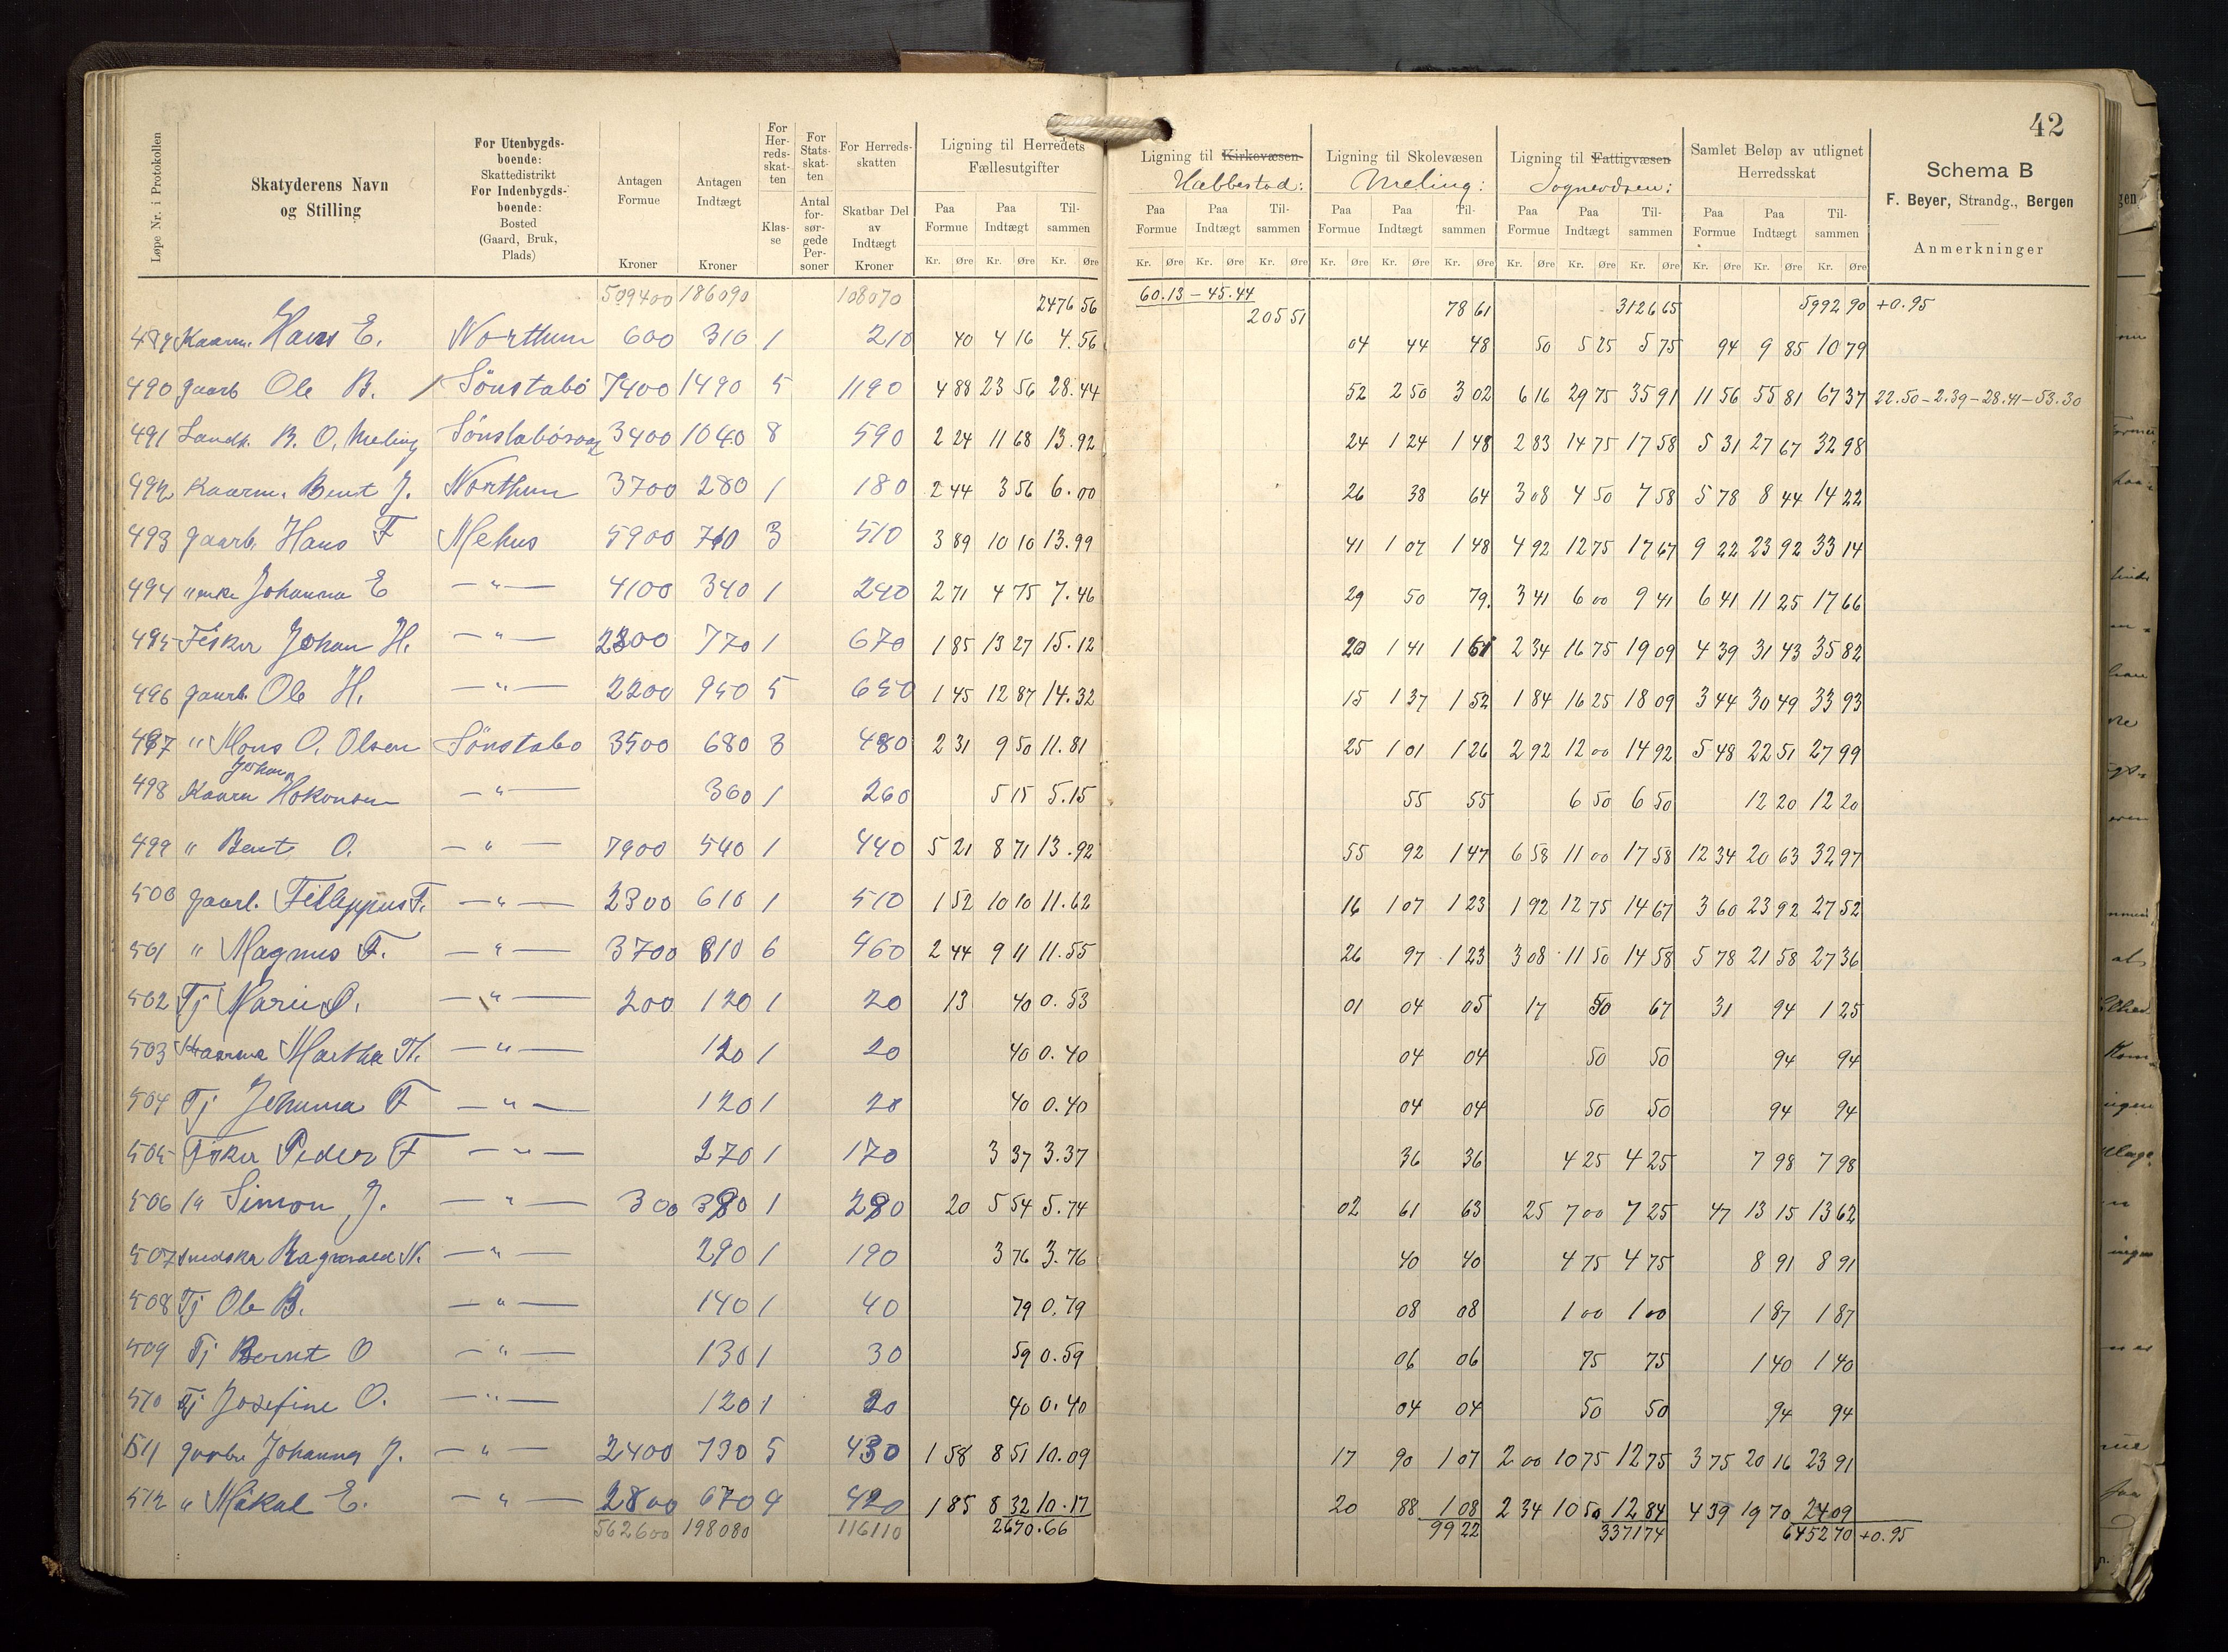 42
Løpe Nr. i Protokollen
Skatyderens Navn og Stilling
For Utenbygds-boende: Skattedistrikt For Indenbygds-boende: Bosted (Gaard, Bruk, Plads)
Antagen Formue Kroner
Antagen Indtægt Kroner
For Her-reds-skat-ten Klas-se
For Stats-skat-ten Antal for-sør-gede Per-soner
For Herreds-skatten Skatbar Del av Indtægt Kroner
Ligning til Herredets Fællesutgifter
Ligning til Kirkevæsen Hæbbestad:
Ligning til Skolevæsen Meling:
Ligning til Fattigvæsen Sognevdsen:
Samlet Beløp av utlignet Herredsskat
Schema B
F. Beyer, Strandg., Bergen
Anmerkninger
Paa Formue Paa Indtægt Til-sammen Paa Formue Paa Indtægt Til-sammen Paa Formue Paa Indtægt Til-sammen Paa Formue Paa Indtægt Til-sammen Paa Formue Paa Indtægt Til-sammen
Kr. Øre Kr. Øre Kr. Øre Kr. Øre Kr. Øre Kr. Øre Kr. Øre Kr. Øre Kr. Øre Kr. Øre Kr. Øre Kr. Øre Kr. Øre Kr. Øre Kr. Øre
509400 186090 108070 2476 56 60.13 - 45.44 205 51 78 61 3126 65 5992 90 +0.95
489 Kaarm. Hans E. Northun 600 310 1 210 40 4 16 4.56 04 44 48 50 5 25 5 75 94 9 85 10 79
490 gaarb Ole B. / Sönstabö 7400 1490 5 1190 4 88 23 56 28.44 52 2 50 3 02 6 16 29 75 35 91 11 56 55 81 67 37 22.50 - 2.39 - 28.41 - 53.30
491 Landh. B. O. Meling Sönstabövaag 3400 1040 8 590 2 24 11 68 13.92 24 1 24 1 48 2 83 14 75 17 58 5 31 27 67 32 98
492 Kaarm. Bent J. Northun 3700 280 1 180 2 44 3 56 6.00 26 38 64 3 08 4 50 7 58 5 78 8 44 14 22
493 gaarb. Hans F Mehus 5900 710 3 510 3 89 10 10 13.99 41 1 07 1 48 4 92 12 75 17 67 9 22 23 92 33 14
494 "enke Johanna E — " — 4100 340 1 240 2 71 4 75 7.46 29 50 79. 3 41 6 00 9 41 6 41 11 25 17 66
495 Fisker Johan H. — " — 2800 770 1 670 1 85 13 27 15.12 20 1 41 1 61 2 34 16 75 19 09 4 39 31 43 35 82
496 gaarb. Ole H. — " — 2200 950 5 650 1 45 12 87 14.32 15 1 37 1 52 1 84 16 25 18 09 3 44 30 49 33 93
497 " Mons O. Olsen Sönstabo 3500 680 3 480 2 31 9 50 11.81 25 1 01 1 26 2 92 12 00 14 92 5 48 22 51 27 99
Johan
498 Kaarm Hokonsen — " — 360 1 260 5 15 5.15 55 55 6 50 6 50 12 20 12 20
499 " Bent O. — " — 7900 540 1 440 5 21 8 71 13.92 55 92 1 47 6 58 11 00 17 58 12 34 20 63 32 97
500 gaarb. Fillippus F. — " — 2300 610 1 510 1 52 10 10 11.62 16 1 07 1 23 1 92 12 75 14 67 3 60 23 92 27 52
501 " Magnus F. — " — 3700 810 6 460 2 44 9 11 11.55 26 97 1 23 3 08 11 50 14 58 5 78 21 58 27 36
502 Tj Marie O. — " — 200 120 1 20 13 40 0.53 01 04 05 17 50 67 31 94 1 25
503 Kaarma Martha Th. — " — 120 1 20 40 0.40 04 04 50 50 94 94
504 Tj Jehuma F — " — 120 1 20 40 0.40 04 04 50 50 94 94
505 Fisker Peder F — " — 270 1 170 3 37 3.37 36 36 4 25 4 25 7 98 7 98
506 " Simon J. — " — 300 380 1 280 20 5 54 5.74 02 61 63 25 7 00 7 25 47 13 15 13 62
507 Snedker Ragnvald N. — " — 290 1 190 3 76 3.76 40 40 4 75 4 75 8 91 8 91
508 Tj Ole B. — " — 140 1 40 79 0.79 08 08 1 00 1 00 1 87 1 87
509 Tj Bernt O — " — 130 1 30 59 0.59 06 06 75 75 1 40 1 40
510 Tj Josefine O. — " — 120 1 20 40 0.40 04 04 50 50 94 94
511 gaarbr Johannes J. — " — 2400 730 5 430 1 58 8 51 10.09 17 90 1 07 2 00 10 75 12 75 3 75 20 16 23 91
512 " Mikal E. — " — 2800 670 4 420 1 85 8 32 10.17 20 88 1 08 2 34 10 50 12 84 4 39 19 70 24 09
562600 198080 116110 2670.66 99 22 3371 74 6452 70 +0.95